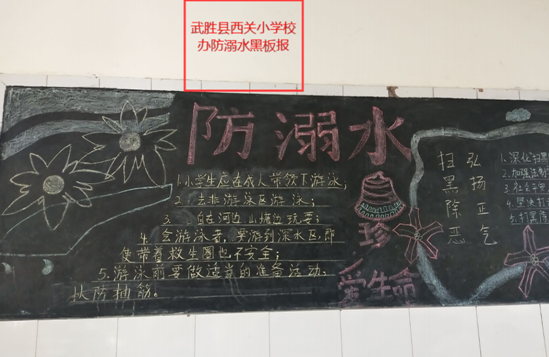 武胜县西关小学校
办防溺水黑板报
防溺水
1.小学生应在成人带领下游泳;
2.去非游泳区游泳;
3.在河边、山塘边玩耍;
4.会游泳者,要游到深水区,即
使带着救生圈也不安全;
5.游泳前要做适当的准备活动,
以防抽筋。
珍
爱生命
弘扬正气
扫黑除恶
1.深化扫黑
2.加强